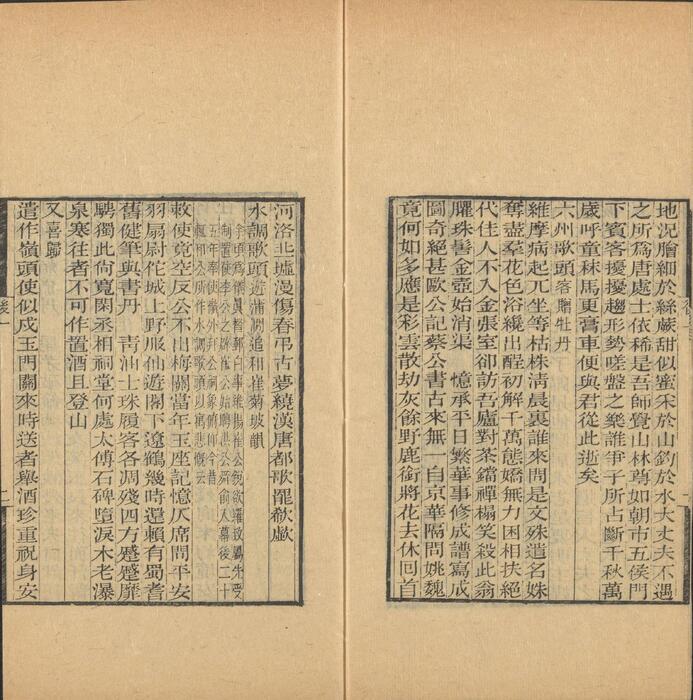 地況膾細於絲蕨甜似蜜朱於山釣於水大丈夫不遇
之所爲唐處士依稀是吾師覺山林尊如朝市五侯門
下賓客擾擾趨形勢嗟盤之樂誰爭子所占斷千秋萬
歲呼童秣馬更膏車便與君從此逝矣
六州歌頭落賙牡丹
維摩病起兀坐等枯株清晨裏誰來問是文殊遣名姝
奪盡羣花色浴纔出酲初解千萬態嬌無力困相扶絕
代佳人不入金張室卻訪吾廬對茶鐺禪榻笑殺此翁
臞珠髻金壺始消渠 憶承平日繁華事修成譜寫成
圖奇絕甚歐公記蔡公書古來無一自京華隔問姚魏
竟何如多應是彩雲散劫灰餘野鹿銜將花去休回首
河洛丘墟漫傷春弔古夢繞漢唐都歌罷欷歔
水調歌頭遊蒲澗追和崔菊坡韻
敕使竟空反公不出梅關當年玉座記憶仄席問平安
羽扇尉佗城上野服仙遊閣下遼鶴幾時還賴有蜀耆
舊健筆與書丹 青油士珠履客各凋殘四方蹙蹙靡
騁獨此尚寬閑丞相祠堂何處太傅石碑墮淚木老瀑
泉寒往者不可作置酒且登山
又喜歸
遣作嶺頭使似戍玉門關來時送者舉酒珍重祝身安
後一
二